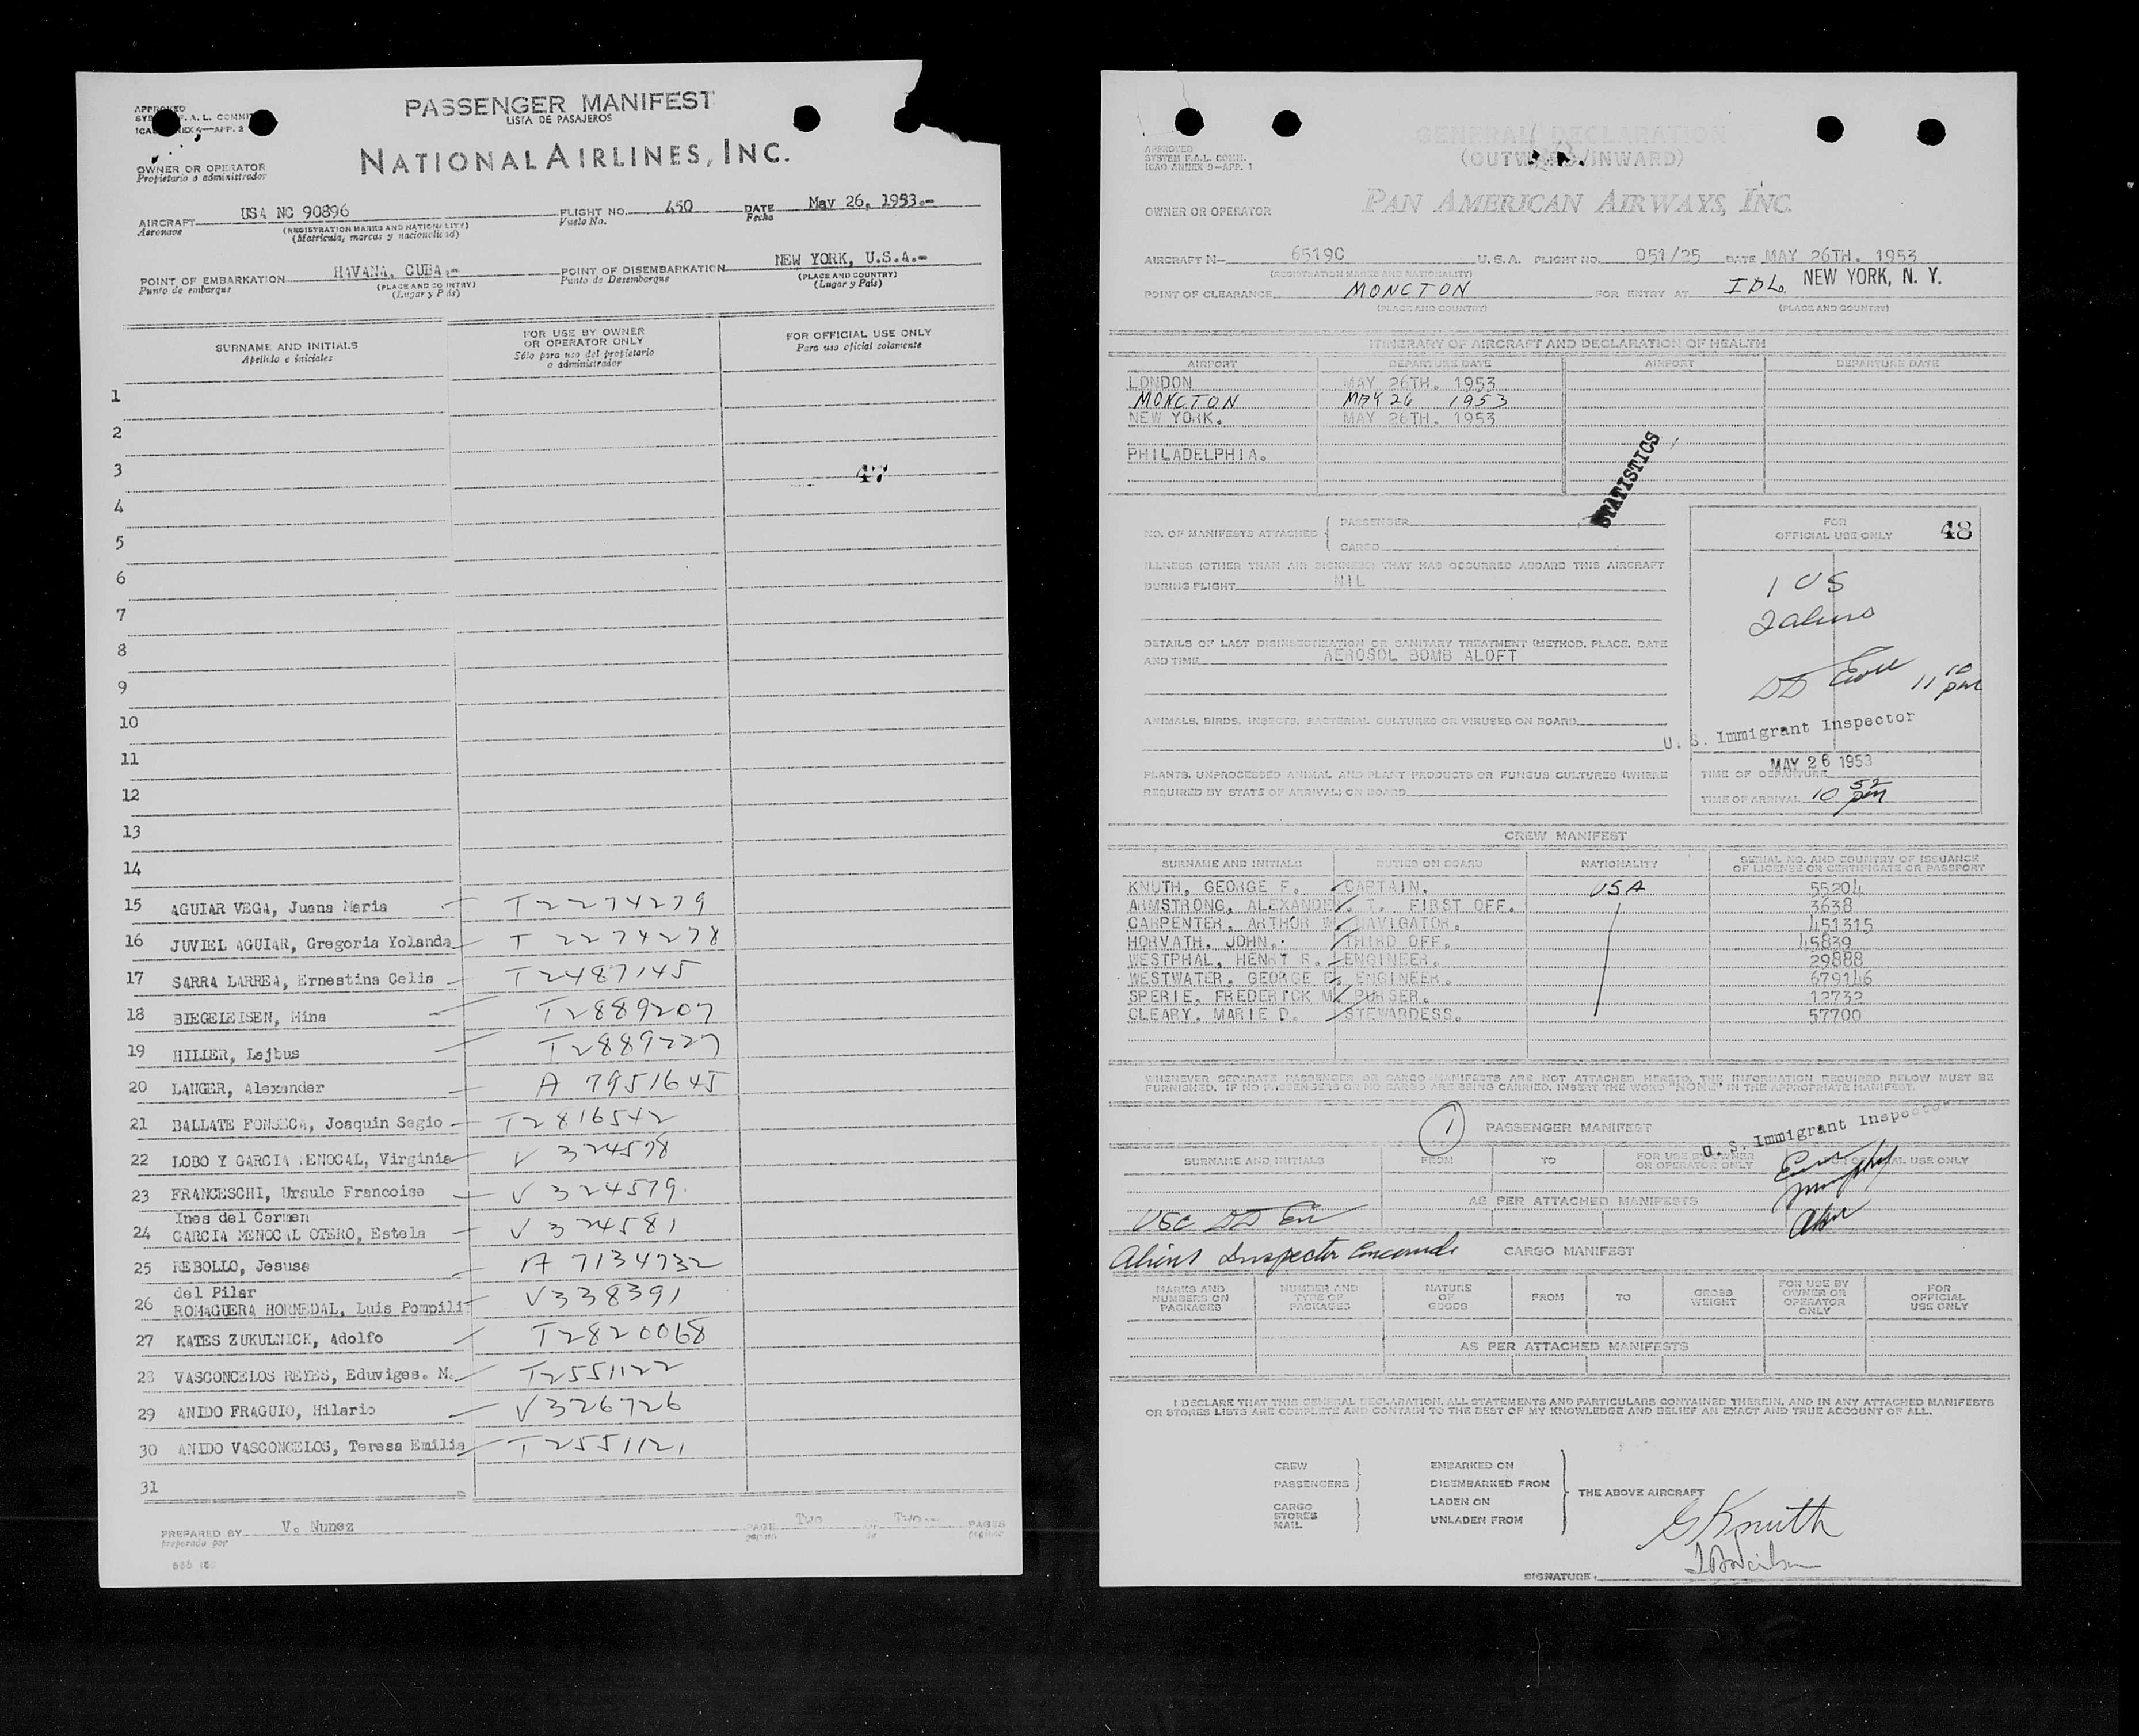 APPROVED
SYS F. A. L. COMMI
ICA NEX 9—APP. 3
PASSENGER MANIFEST
LISTA DE PASAJEROS
NATIONAL AIRLINES, INC.
OWNER OR OPERATOR
Propietario o administrador
AIRCRAFT USA NC 90896 FLIGHT NO. 450 DATE May 26, 1953.-
Aeronave (REGISTRATION MARKS AND NATIONALITY) Vuelo No. Fecha
(Matricula, marcas y nacionalidad)
POINT OF EMBARKATION HAVANA, CUBA.- POINT OF DISEMBARKATION NEW YORK, U.S.A.-
Punto de embarque (PLACE AND COUNTRY) Punto de Desembarque (PLACE AND COUNTRY)
(Lugar y País) (Lugar y País)
SURNAME AND INITIALS
Apellido e iniciales
FOR USE BY OWNER
OR OPERATOR ONLY
Sólo para uso del propietario
o administrador
FOR OFFICIAL USE ONLY
Para uso oficial solamente
1
2
3 47
4
5
6
7
8
9
10
11
12
13
14
15 AGUIAR VEGA, Juana Maria T2274279
16 JUVIEL AGUIAR, Gregoria Yolanda T 2274278
17 SARRA LARREA, Ernestina Celia T2487145
18 BIEGELEISEN, Mina T2889207
19 HILLER, Lajbus T2889227
20 LANGER, Alexander A 7951645
21 BALLATE FONSECA, Joaquin Segio T2816542
22 LOBO Y GARCIA MENOCAL, Virginia V 324578
23 FRANCESCHI, Ursulo Francoise V 324579
Ines del Carmen
24 GARCIA MENOCAL OTERO, Estela V 324581
25 REBOLLO, Jesusa A 7134732
del Pilar
26 ROMAGUERA HORNEDAL, Luis Pompili V338391
27 KATES ZUKULNICK, Adolfo T2820068
28 VASCONCELOS REYES, Eduviges. M. T2551122
29 ANIDO FRAGUIO, Hilario V326726
30 ANIDO VASCONCELOS, Teresa Emilia T2551121
31
PREPARED BY V. Nunez PAGE Two OF Two PAGES
preparado por página de páginas
APPROVED
SYSTEM F.A.L. COMM.
ICAO ANNEX 9—APP. 1
GENERAL DECLARATION
(OUTWARD/INWARD)
PAN AMERICAN AIRWAYS, INC.
OWNER OR OPERATOR
AIRCRAFT N- 6519C U.S.A. FLIGHT NO. 051/25 DATE MAY 26TH. 1953
(REGISTRATION MARKS AND NATIONALITY)
POINT OF CLEARANCE MONCTON FOR ENTRY AT IDL. NEW YORK, N. Y.
(PLACE AND COUNTRY) (PLACE AND COUNTRY)
ITINERARY OF AIRCRAFT AND DECLARATION OF HEALTH
AIRPORT DEPARTURE DATE AIRPORT DEPARTURE DATE
LONDON MAY 26TH. 1953
MONCTON MAY 26 1953
NEW YORK. MAY 26TH. 1953
PHILADELPHIA.
STATISTICS
NO. OF MANIFESTS ATTACHED
PASSENGER
CARGO
FOR
OFFICIAL USE ONLY 48
ILLNESS (OTHER THAN AIR SICKNESS) THAT HAS OCCURRED ABOARD THIS AIRCRAFT
DURING FLIGHT NIL
1 US
2 aliens
DETAILS OF LAST DISINSECTIZATION OR SANITARY TREATMENT (METHOD, PLACE, DATE
AND TIME AEROSOL BOMB ALOFT
11 10 pm
ANIMALS, BIRDS, INSECTS, BACTERIAL CULTURES OR VIRUSES ON BOARD
U. S. Immigrant Inspector
MAY 26 1953
PLANTS, UNPROCESSED ANIMAL AND PLANT PRODUCTS OR FUNGUS CULTURES (WHERE
REQUIRED BY STATE OF ARRIVAL) ON BOARD
TIME OF DEPARTURE
TIME OF ARRIVAL 10 52 pm
CREW MANIFEST
SURNAME AND INITIALS DUTIES ON BOARD NATIONALITY SERIAL NO. AND COUNTRY OF ISSUANCE
OF LICENSE OR CERTIFICATE OR PASSPORT
KNUTH, GEORGE F. CAPTAIN. USA 55204
ARMSTRONG, ALEXANDER. T. FIRST OFF. 3638
CARPENTER, ARTHUR W. NAVIGATOR. 451315
HORVATH, JOHN. THIRD OFF. 45839
WESTPHAL, HENRY R. ENGINEER. 29888
WESTWATER, GEORGE E. ENGINEER. 679146
SPERIE, FREDERICK W. PURSER. 12732
CLEARY, MARIE D. STEWARDESS. 57700
WHENEVER SEPARATE PASSENGER OR CARGO MANIFESTS ARE NOT ATTACHED HERETO, THE INFORMATION REQUIRED BELOW MUST BE
FURNISHED. IF NO PASSENGERS OR NO CARGO ARE BEING CARRIED, INSERT THE WORD "NONE" IN THE APPROPRIATE MANIFEST.
1 PASSENGER MANIFEST
U. S. Immigrant Inspector
SURNAME AND INITIALS FROM TO FOR USE BY OWNER
OR OPERATOR ONLY FOR OFFICIAL USE ONLY
AS PER ATTACHED MANIFESTS
USC
Aliens Inspector
CARGO MANIFEST
MARKS AND
NUMBERS ON
PACKAGES
NUMBER AND
TYPE OF
PACKAGES
NATURE
OF
GOODS
FROM
TO
GROSS
WEIGHT
FOR USE BY
OWNER OR
OPERATOR
ONLY
FOR
OFFICIAL
USE ONLY
AS PER ATTACHED MANIFESTS
I DECLARE THAT THIS GENERAL DECLARATION, ALL STATEMENTS AND PARTICULARS CONTAINED THEREIN, AND IN ANY ATTACHED MANIFESTS
OR STORES LISTS ARE COMPLETE AND CONTAIN TO THE BEST OF MY KNOWLEDGE AND BELIEF AN EXACT AND TRUE ACCOUNT OF ALL.
CREW
PASSENGERS
CARGO
STORES
MAIL
EMBARKED ON
DISEMBARKED FROM
LADEN ON
UNLADEN FROM
THE ABOVE AIRCRAFT
G Knuth
SIGNATURE